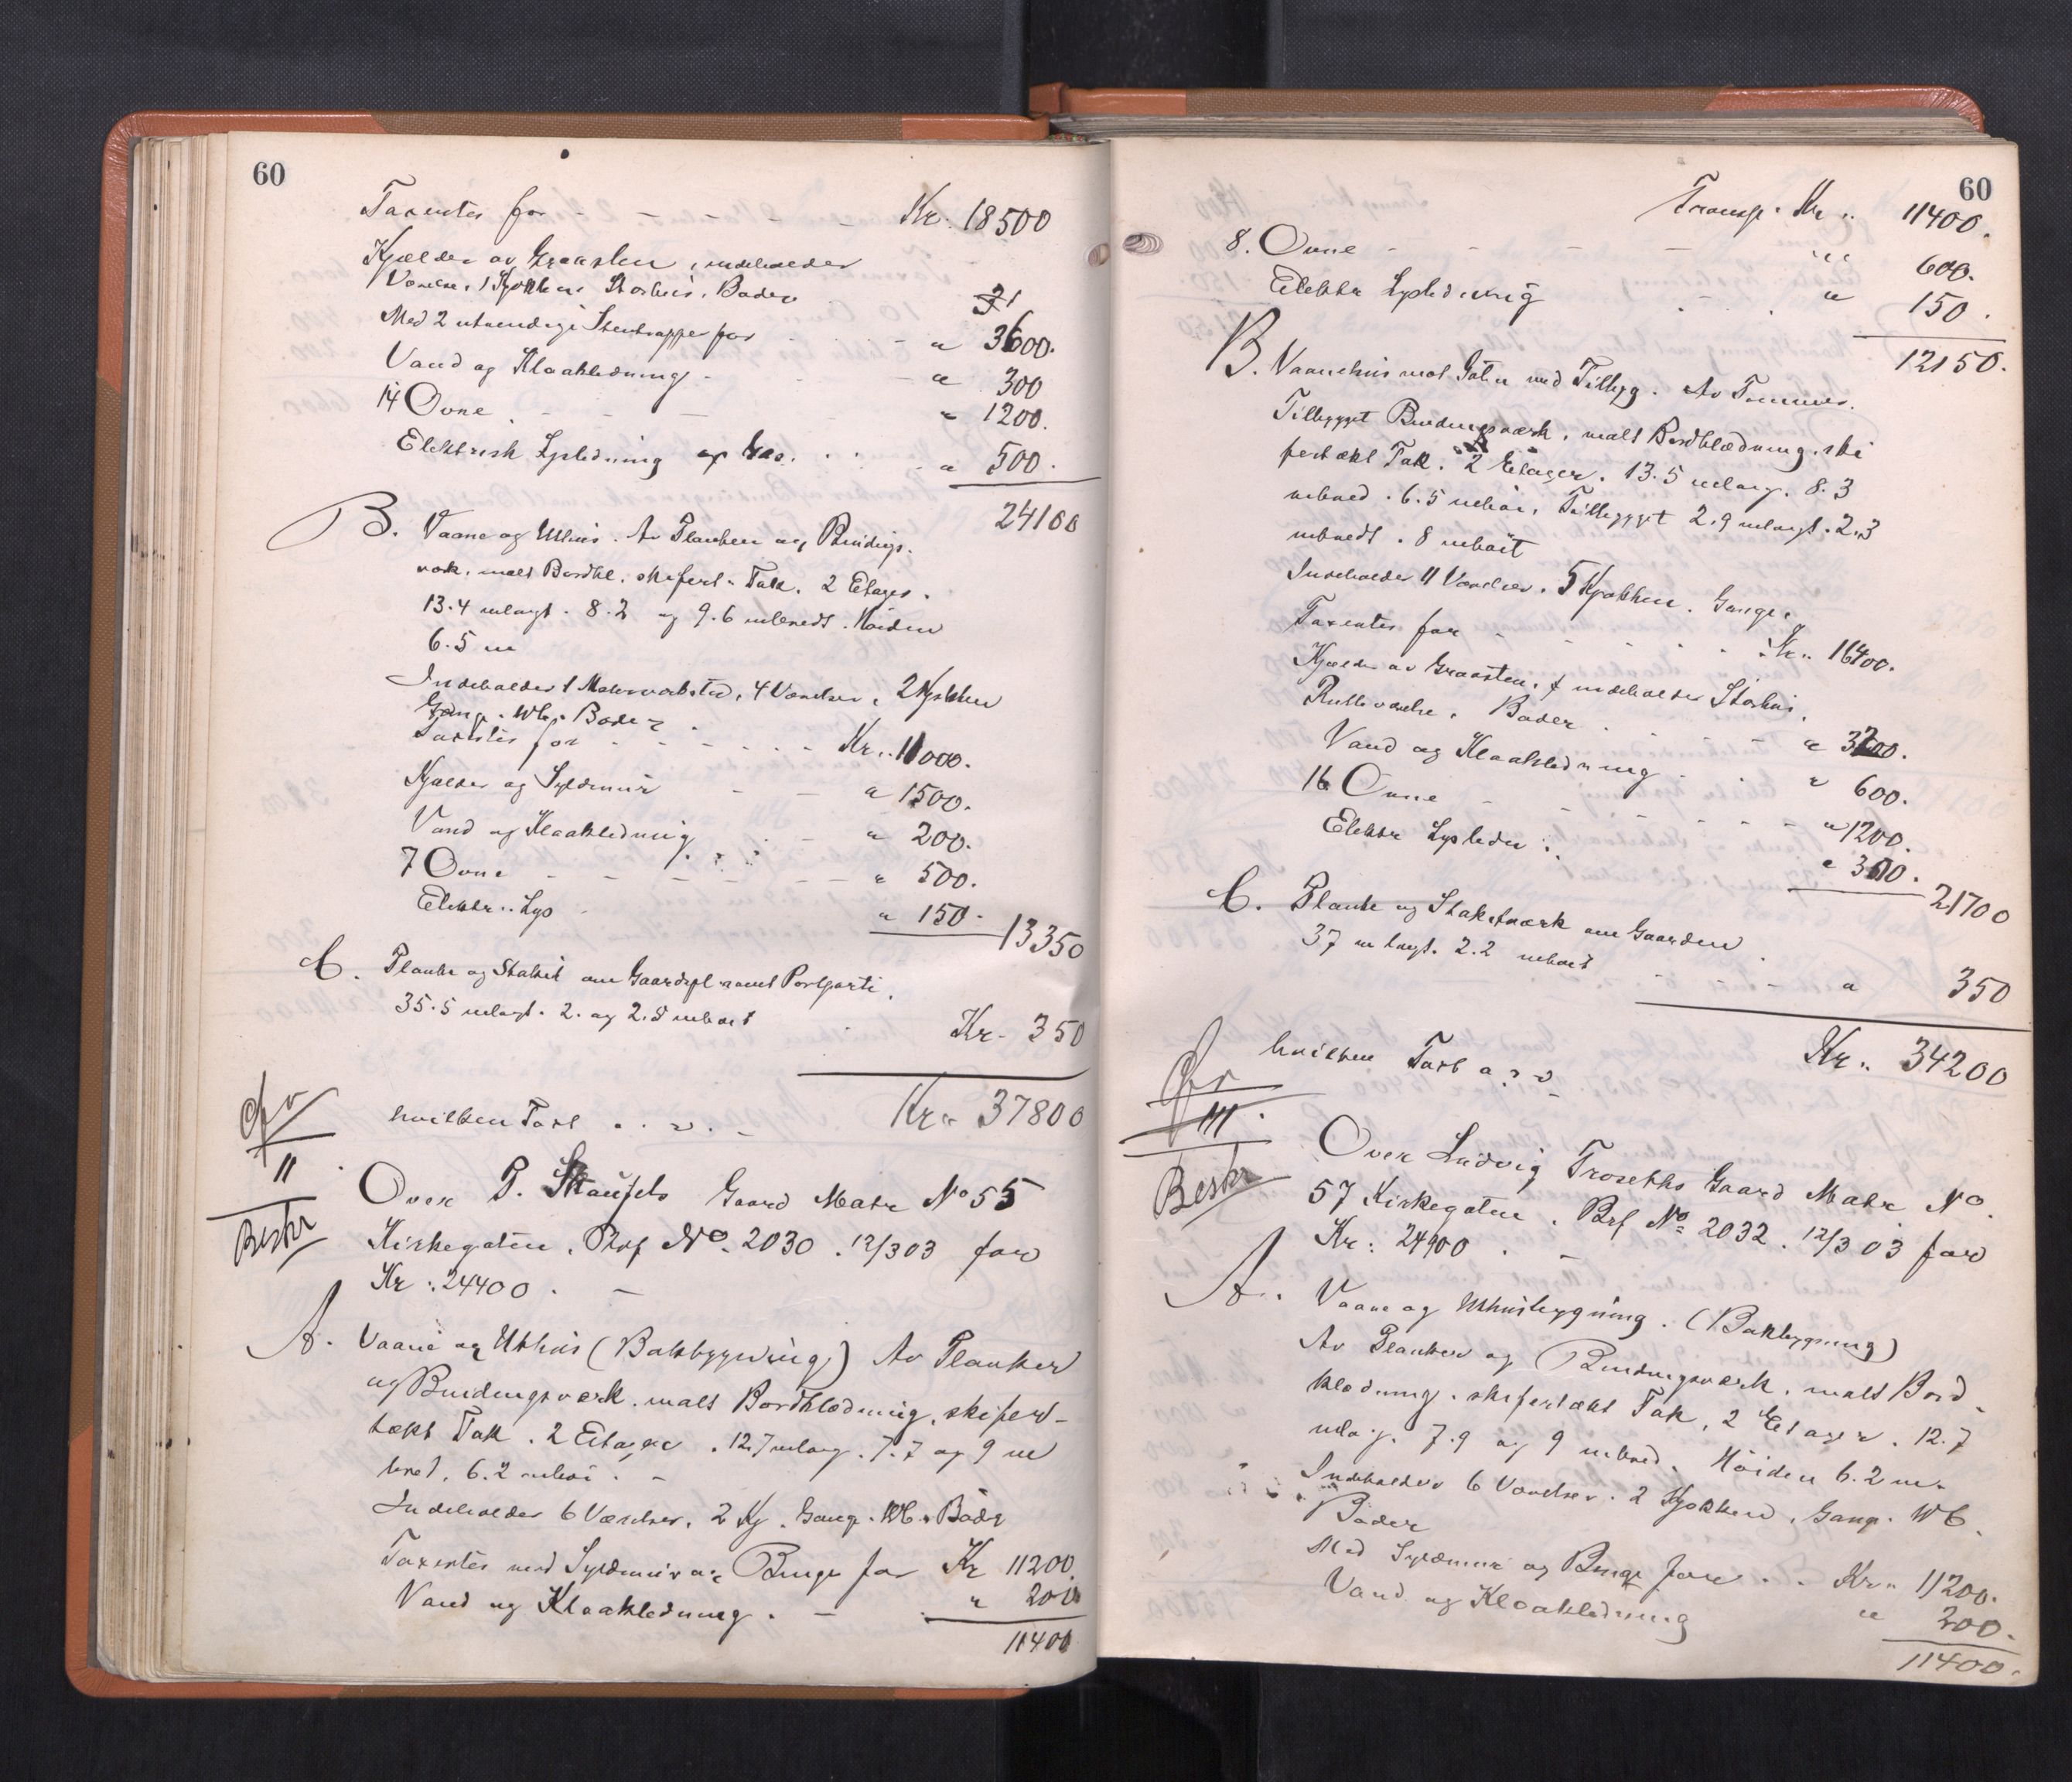 60
Taxertes for - - - - - Kr. 18500
Kjælder av Graasten, indeholder
Værelse, 1 Kjøkken Storhus, Boder
Med 2 utvendige Stentrapper for " 3600.
Vand og Kloakledning - " 300
14 Ovne - - - " 1200.
Elektrisk Lysledning og Gas. " 500.
24100
B. Vaane og Uthus. Av Planker og Bindings-
værk, malt Bordkl. skifert. Tak. 2 Etager.
13.4 m langt. 8.2 og 9.6 m bredt. Høiden
6.5 m
Indeholder 1 Malerverksted, 4 Værelser, 2 Kjøkken
Gang. Wc. Boder
Taxertes for - - - - - Kr. 11000.
Kjælder og Syldmur - - " 1500.
Vand og Kloakledning - " 200.
7 Ovne - - - - - " 500.
Elektr. Lys " 150. 13350
C. Planke og Stakit om Gaardspl. samt Portparti.
35.5 m langt. 2. og 2.5 m høit
Kr. 350
hvilken Taxt Kr. 37800
II
Beskr
Over P. Skaufels Gaard Matr No 55
Kirkegaten. Brf No. 2030. 12/3 03 for
Kr. 24400. -
A. Vaane og Uthus (Bakbygning) Av Planker
og Bindingsværk. malt Bordklædning, skifer-
tækt Tak. 2 Etager. 12.7 m lang. 7.7 og 9 m
bred. 6.2 m høi. -
Indeholder 6 Værelser, 2 Kj. Gang. Wc. Boder
Taxertes med Syldmur og Binge for Kr 11200.
Vand og Kloakledning. - " 200
11400
60
Transp. Kr. 11400.
8. Ovne - - - - " 600.
Elektr Lysledning - . " 150.
12150.
B. Vaanehus mot Gaten med Tilbyg. Av Tømmer.
Tilbygget Bindingsværk, malt Bordklædning, ski
fertækt Tak. 2 Etager. 13.5 m lang. 8.3
m bred. 6.5 m høi, Tilbygget 2.9 m langt. 2.3
m bredt. 8 m høit
Indeholder 11 Værelser, 5 Kjøkken. Gange.
Taxertes for - - - - Kr. 16400.
Kjælder av Graasten, indeholder Storhus,
Rulleværelse, Boder - - " 3200.
Vand og Kloakledning . " 600.
16 Ovne - - - - - " 1200.
Elektr Lysleder " 300. 21700
C. Planke og Stakitværk om Gaarden
37 m langt. 2.2 m høit - - - " 350
hvilken Taxt Kr. 34200
III.
Beskr
Over Ludvig Troseths Gaard Matr No.
57 Kirkegaten. Brf No 2032. 12/3 03 for
Kr. 24900. -
A. Vaane og Uthusbygning. (Bakbygning)
Av Planker og Bindingsværk, malt Bord-
klædning, skifertækt Tak, 2 Etager. 12.7
m lang. 7.9 og 9 m bred. Høiden 6.2 m.
Indeholder 6 Værelser. 2 Kjøkken, Gang. WC.
Boder
Med Syldmur og Binge for . . Kr. 11200.
Vand og Kloakledning " 200.
11400.